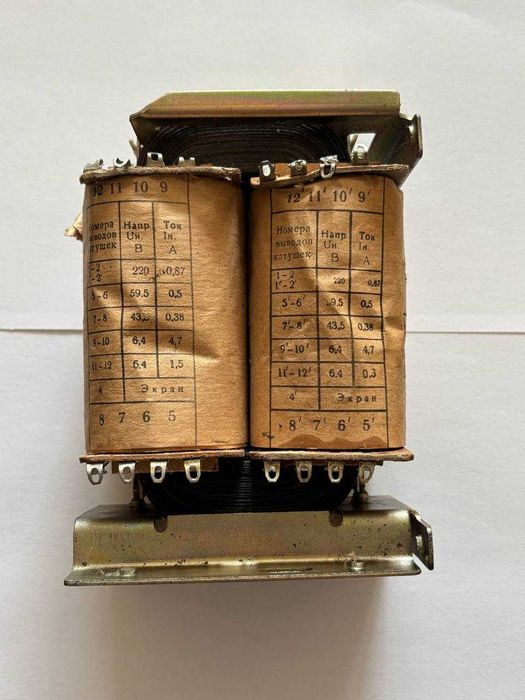 12 11 10 9
Номера выводов катушек Напр. Uн В Ток Iн. А
1-2 220 0,87
5-6 59.5 0.5
7-8 43,5 0,38
9-10 6,4 4,7
11-12 6.4 1,5
4 Экран
8 7 6 5
12′ 11′ 10′ 9′
Номера выводов катушек Напр. Uн В Ток Iн. А
1-2 1′-2′ 220 0,87
5′-6′ 9.5 0.5
7′-8′ 43,5 0,38
9′-10′ 6,4 4,7
11′-12′ 6.4 0.3
4′ Экран
8′ 7′ 6′ 5′